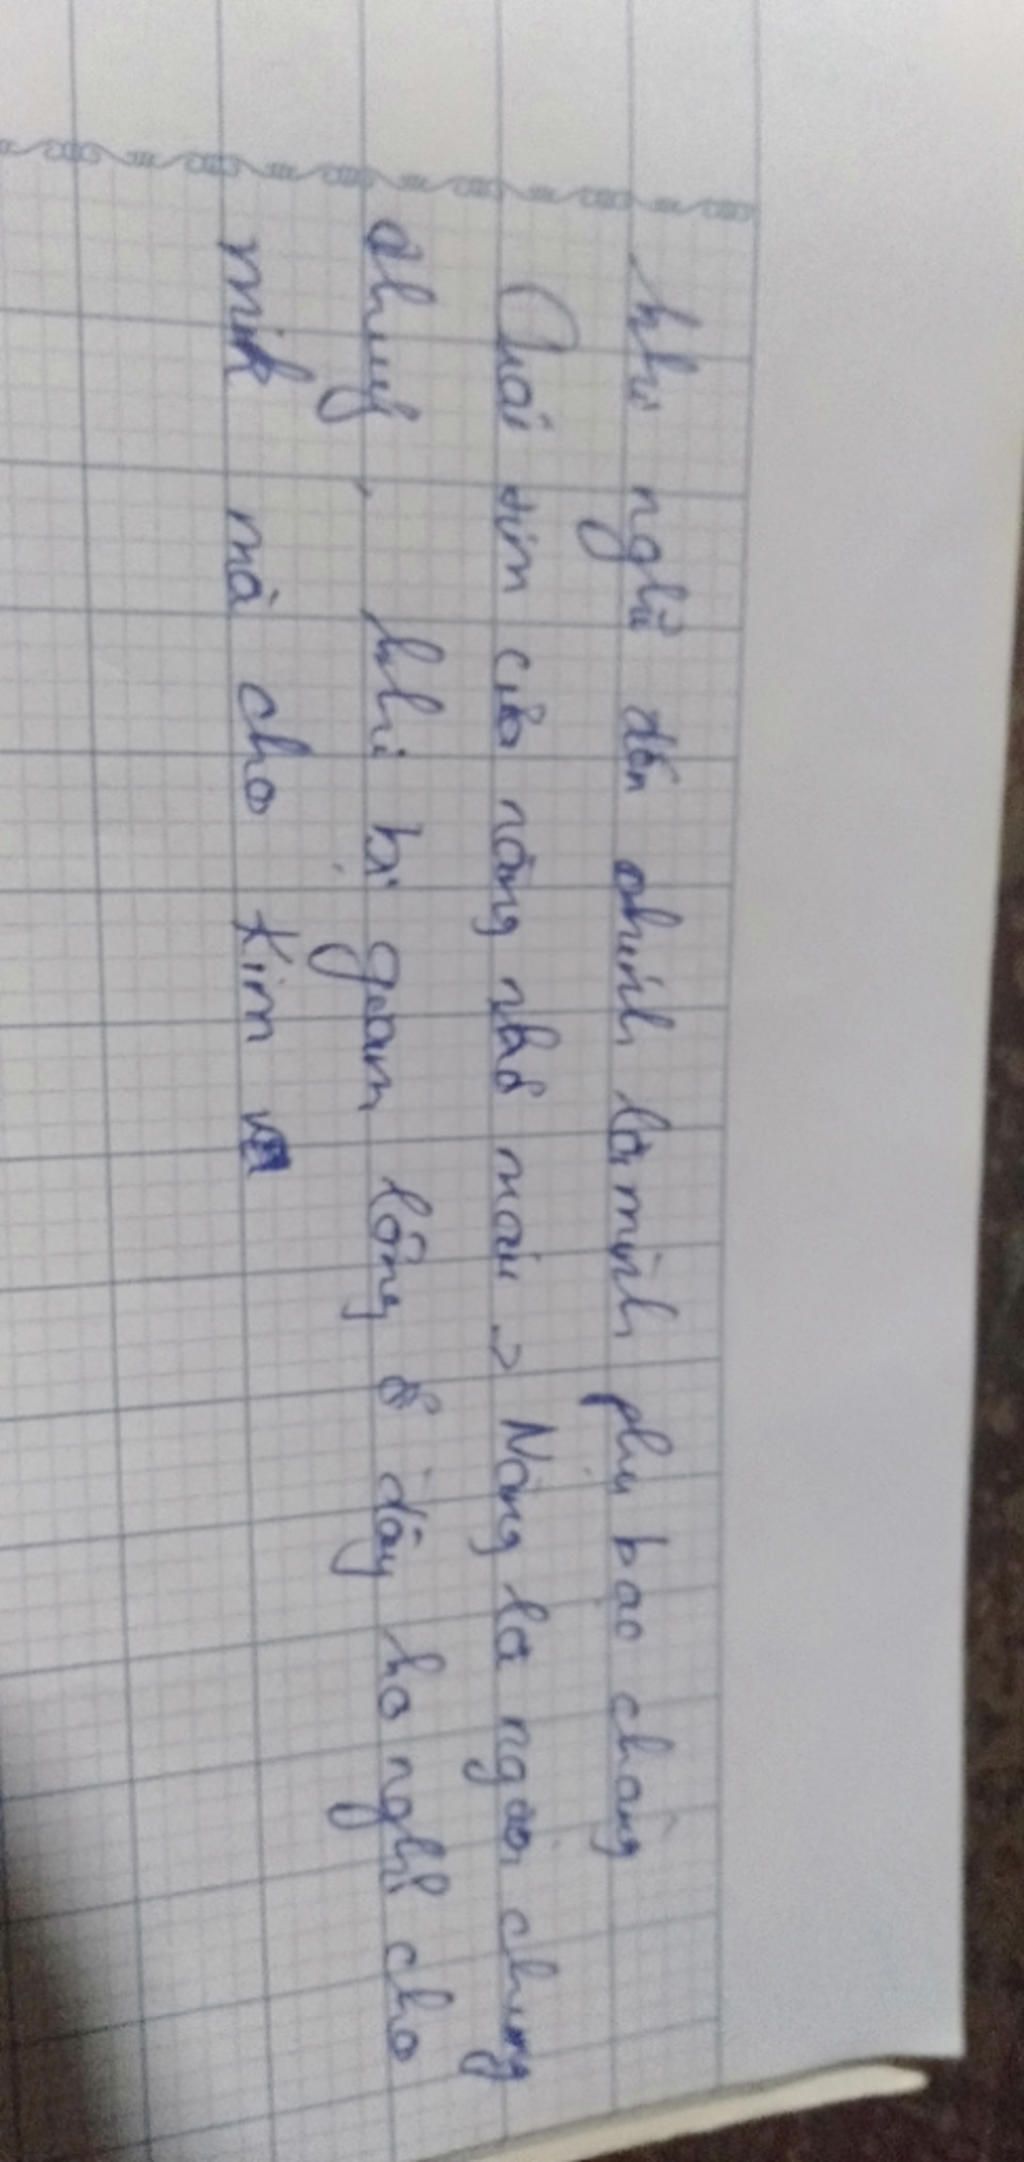 khi nghĩ đến chính là mình phụ bạc chàng
Trái tim của nàng nhỏ máu -> Nàng là người chung
thuỷ, khi bị giam lỏng ở đây ko nghĩ cho
mình mà cho Kim